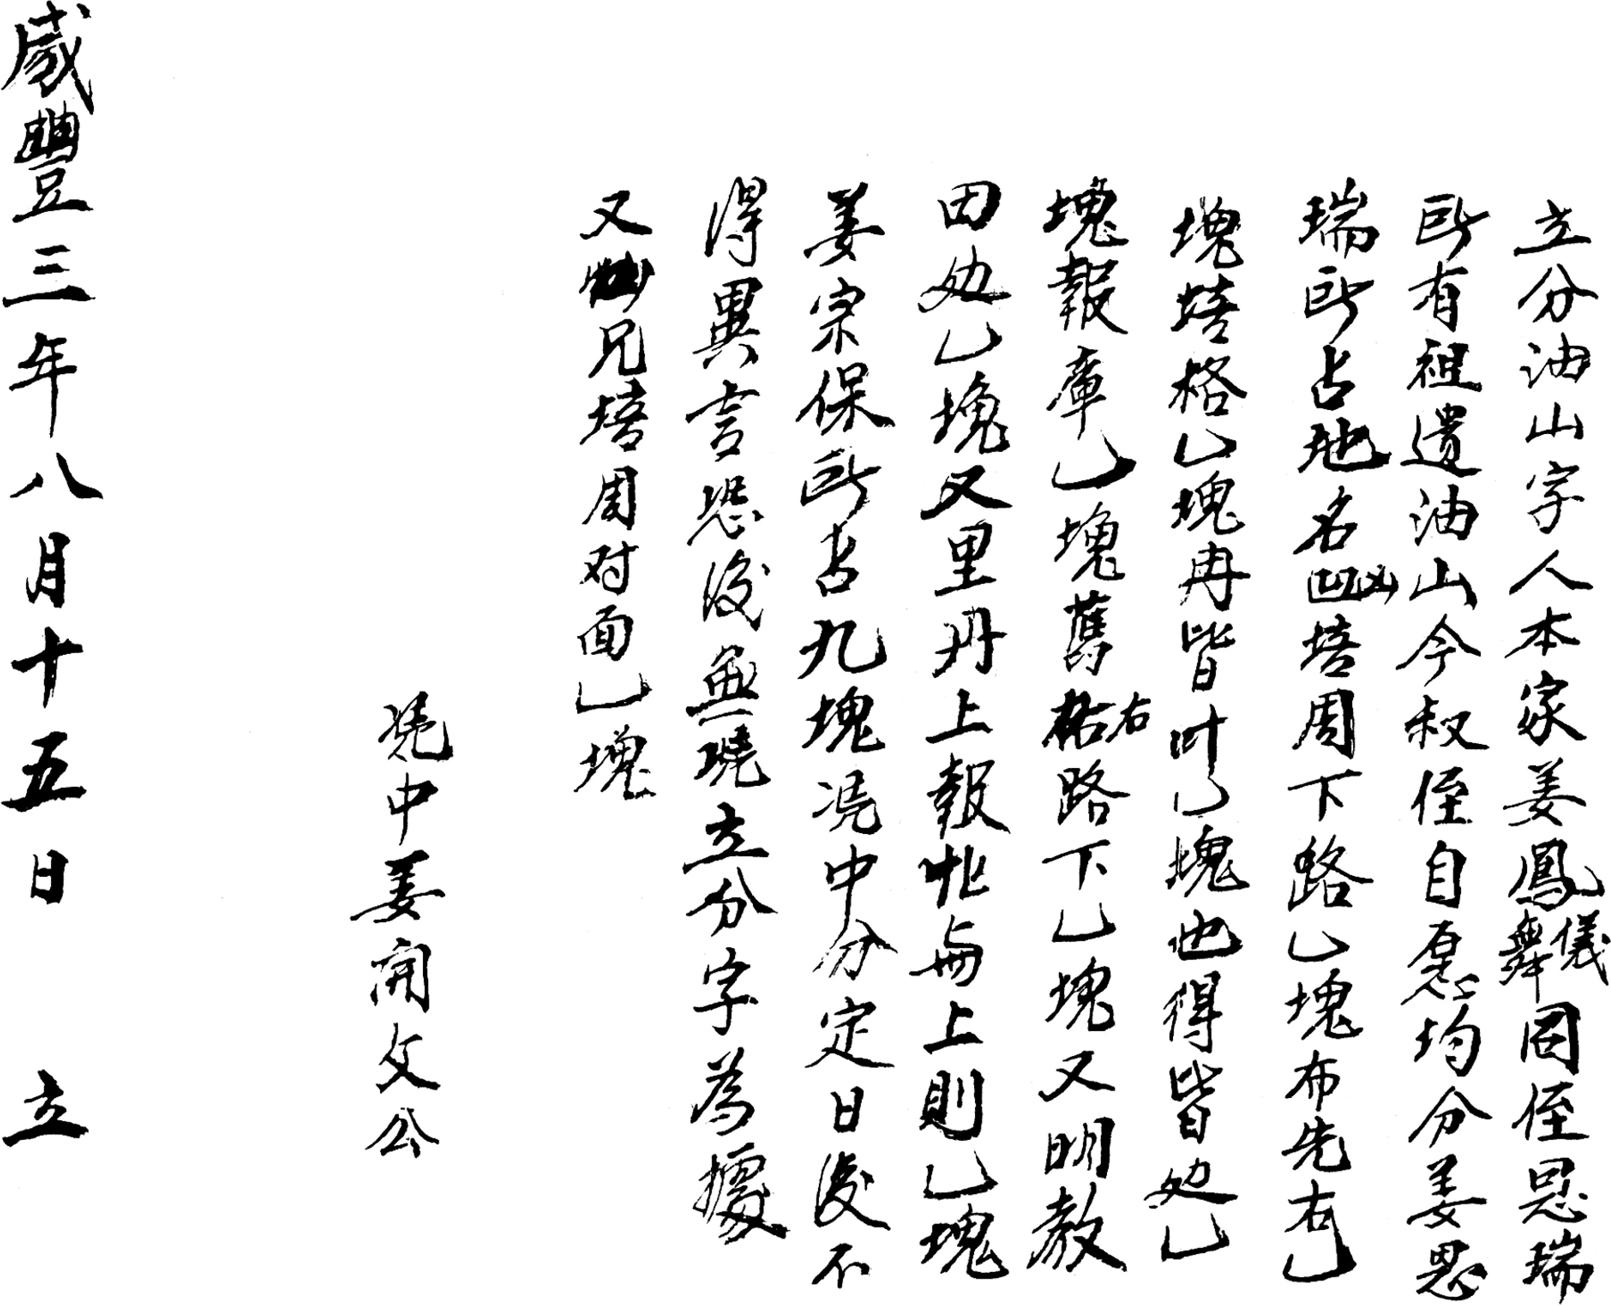 立分油山字人本家姜鳳儀舞同侄恩瑞
所有祖遺油山今叔侄自愿均分姜恩
瑞所占地名凹培周下路乙塊布先右乙
塊培格乙塊冉皆叶乙塊也得皆处乙
塊報庫乙塊舊右路下乙塊又明教
田处乙塊又里丹上報上則乙塊
姜宗保所占九塊凴中分定日後不
得異言恐後無立分字為據
又兄培周对面乙塊
凴中姜開文公
咸豐三年八月十五日 立